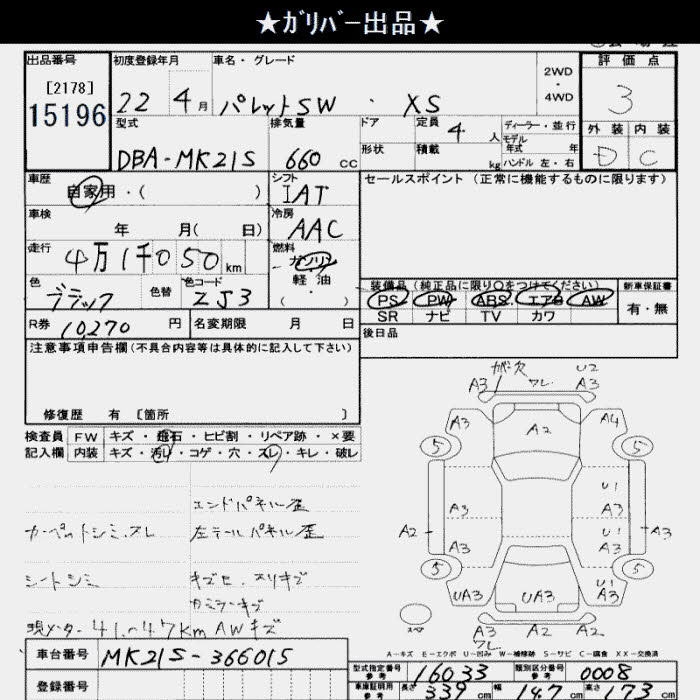 ★ｶﾞﾘﾊﾞｰ出品★
出品番号
[2178]
15196
初度登録年月
22 4月
車名・グレード
パレットSW ・ XS
2WD
・
4WD
評価点
3
外装 内装
D C
型式
DBA-MK21S
排気量
660 cc
ドア
定員
4 人
形状
積載
kg
ディーラー・並行
モデル
年式 年
ハンドル 左・右
車歴
自家用・( )
シフト
IAT
車検
年 月( 日)
冷房
AAC
走行
4万1千050 km
燃料
ガソリン
軽油
( ・ )
色
ブラック
色替
色コード
ZJ3
R券 10,270 円
名変期限 月 日
セールスポイント (正常に機能するものに限ります)
装備品(純正品に限り○をつけてください)
PS PW ABS エアB AW
SR ナビ TV カワ
新車保証書
有・無
後日品
注意事項申告欄(不具合内容等は具体的に記入して下さい)
修復歴 有 〔箇所 〕
検査員
記入欄
FW キズ・飛石・ヒビ割・リペア跡・×要
内装 キズ・汚れ・コゲ・穴・スレ・キレ・破レ
エンドパネル歪
カーペットシミ.スレ
左テールパネル歪
シートシミ
キズセ.スリキズ
カミラーキズ
現メーター 41.047km AWキズ
ガバ欠
A3 ワレ U2 A3
A3 A2 A4
5 5
U1
A3 A3
A2 U1 A3
A3 A3
5 5
UA3 UA3 U1 A3
スペ
A3 A2 A2
ワレ
A-キズ E-エクボ U-凹み W-補修跡 S-サビ C-腐食 XX-交換済
車台番号
MK21S-366015
登録番号
型式指定番号
参考
16033
類別区分番号
参考
0008
車庫証明用
参考
長さ 339 cm 幅 147 cm 高さ 173 cm